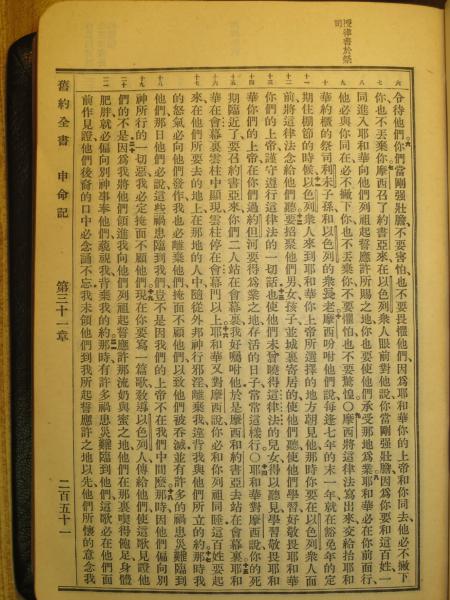 授律書於祭
司
六 七 八 九 十 十一 十二 十三 十四 十五 十六 十七 十八 十九 二十 二一
令待他們、你們當剛強壯膽、不要害怕、也不要畏懼他們、因爲耶和華你的上帝和你同去、他必不撇下
你、也不丟棄你。摩西召了約書亞來、在以色列衆人眼前對他說、你當剛強壯膽、因爲你要和這百姓一
同進入耶和華向他們列祖起誓應許所賜之地、你也要使他們承受那地爲業。耶和華必在你前面行、
他必與你同在、必不撇下你、也不丟棄你、不要懼怕、也不要驚惶。○摩西將這律法寫出來、交給抬耶和
華約櫃的祭司利未子孫、和以色列的衆長老。摩西吩咐他們說、每逢七年的末一年、就在豁免年的定
期住棚節的時候、以色列衆人來到耶和華你上帝所選擇的地方朝見他、那時你要在以色列衆人面
前將這律法念給他們聽。要招聚他們男女孩子、並城裏寄居的、使他們聽、使他們學習、好敬畏耶和華
你們的上帝、謹守遵行這律法的一切話、也使他們未曾曉得這律法的兒女、得以聽見、學習敬畏耶和
華你們的上帝、在你們過約但河要得爲業之地、存活的日子、常常這樣行。○耶和華對摩西說、你的死
期臨近了、要召約書亞來、你們二人站在會幕裏、我好囑咐他。於是摩西和約書亞去站在會幕裏。耶和
華在會幕裏雲柱中顯現、雲柱停在會幕門以上。耶和華又對摩西說、你必和你列祖同睡、這百姓要起
來、在他們所要去的地上、在那地的人中、隨從外邦神行邪淫、離棄我、違背我與他們所立的約。那時我
的怒氣必向他們發作、我也必離棄他們、掩面不顧他們、以致他們被吞滅、並有許多的禍患災難臨到
他們、那日他們必說、這些禍患臨到我們、豈不是因我們的上帝不在我們中間麼。那時因他們偏向別
神所行的一切惡、我必定掩面不顧他們。現在你要寫一篇歌、教導以色列人傳給他們、使這歌見證他
們的不是、因爲我將他們領進我向他們列祖起誓應許那流奶與蜜之地、他們在那裏喫得飽足、身體
肥胖、就必偏向別神、事奉他們、藐視我、背棄我的約。那時有許多禍患災難臨到他們、這歌必在他們面
前作見證、他們後裔的口中必念誦不忘。我未領他們到我所起誓應許之地以先、他們所懷的意念我
舊約全書 申命記 第三十一章 二百五十一